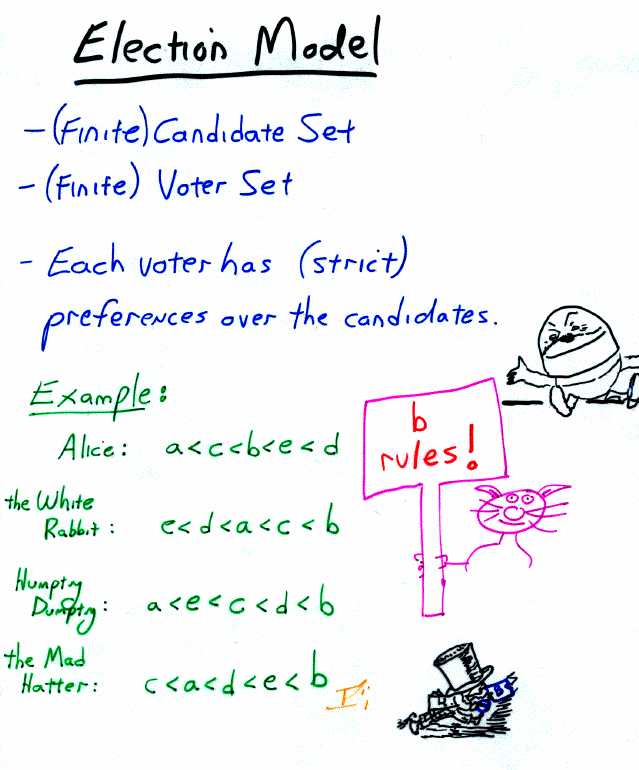 Election Model
- (Finite) Candidate Set
- (Finite) Voter Set
- Each voter has (strict)
preferences over the candidates.
Example:
Alice: a<c<b<e<d
the White
Rabbit: e<d<a<c<b
Humpty
Dumpty: a<e<c<d<b
the Mad
Hatter: c<a<d<e<b
b
rules!